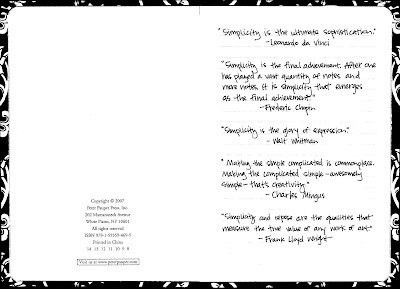 Copyright © 2007
Peter Pauper Press, Inc.
202 Mamaroneck Avenue
White Plains, NY 10601
All rights reserved
ISBN 978-1-59359-869-5
Printed in China
14 13 12 11 10 9 8
Visit us at www.peterpauper.com
"Simplicity is the ultimate sophistication."
-Leonardo da Vinci
"Simplicity is the final achievement. After one
has played a vast quantity of notes and
more notes, it is simplicity that emerges
as the final achievement."
-Frederic Chopin
"Simplicity is the glory of expression."
- Walt Whitman
"Making the simple complicated is commonplace.
Making the complicated simple-awesomely
simple-that's creativity."
- Charles Mingus
"Simplicity and repose are the qualities that
measure the true value of any work of art."
- Frank Lloyd Wright